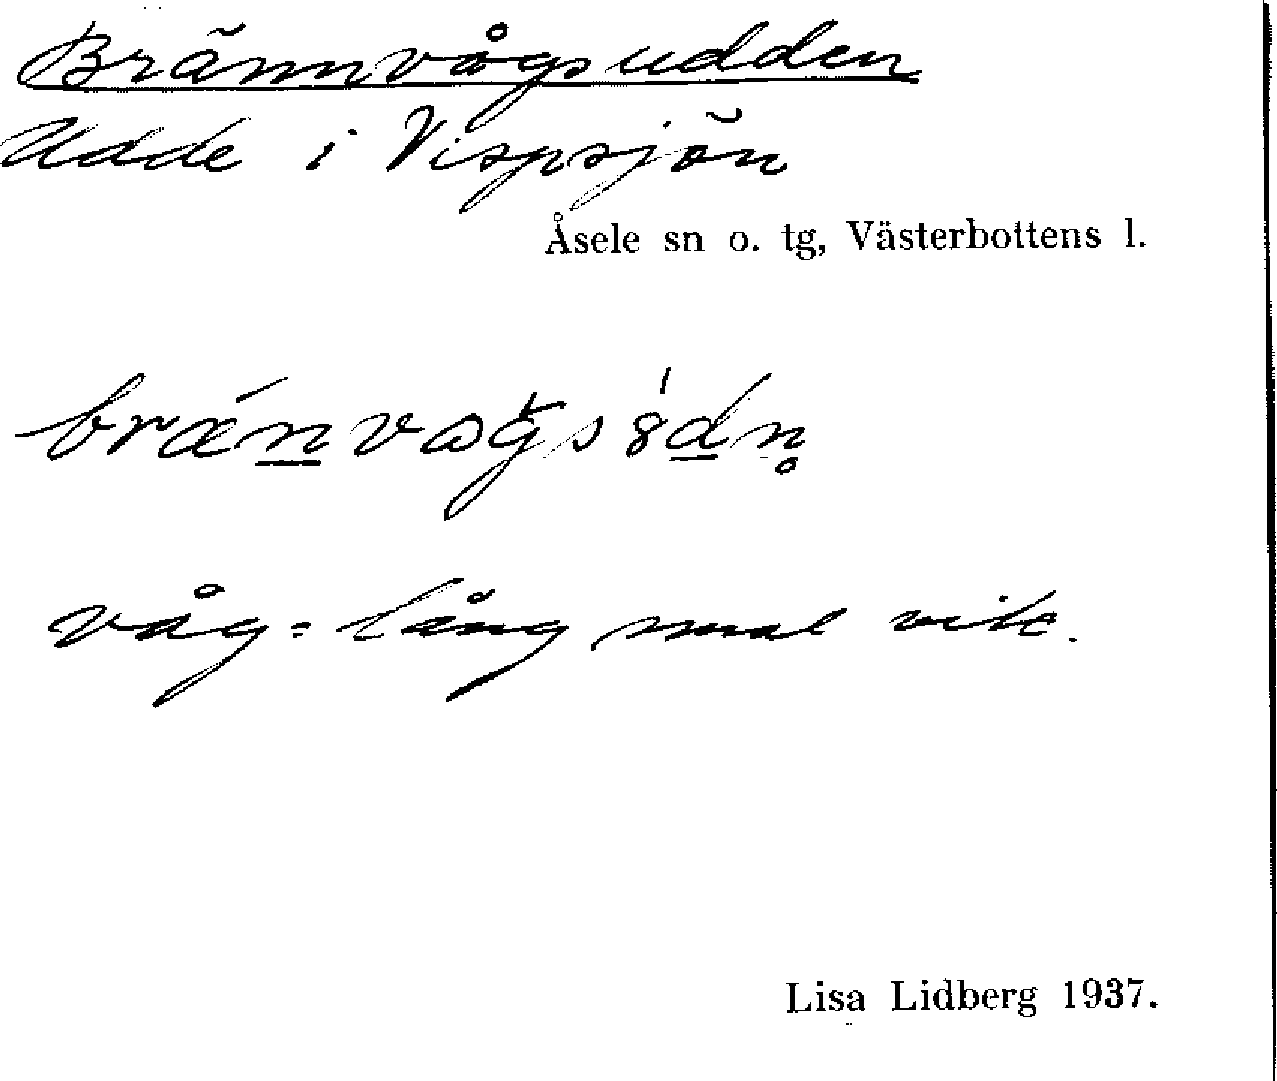 Brännvågsudden
Udde i Vispsjön
Åsele sn o. tg, Västerbottens l.
våg = lång smal vik.
Lisa Lidberg 1937.